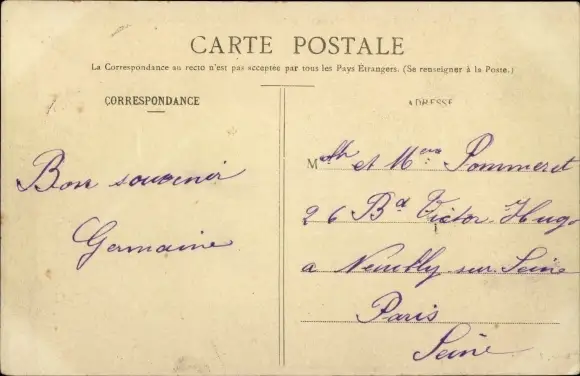 CARTE POSTALE
La Correspondance au recto n'est pas acceptée par tous les Pays Étrangers. (Se renseigner à la Poste.)
CORRESPONDANCE
Bon souvenir
Germaine
ADRESSE
M et Mme Pommeret
26 Bd Victor-Hugo
a Neuilly-sur-Seine
Paris
Seine